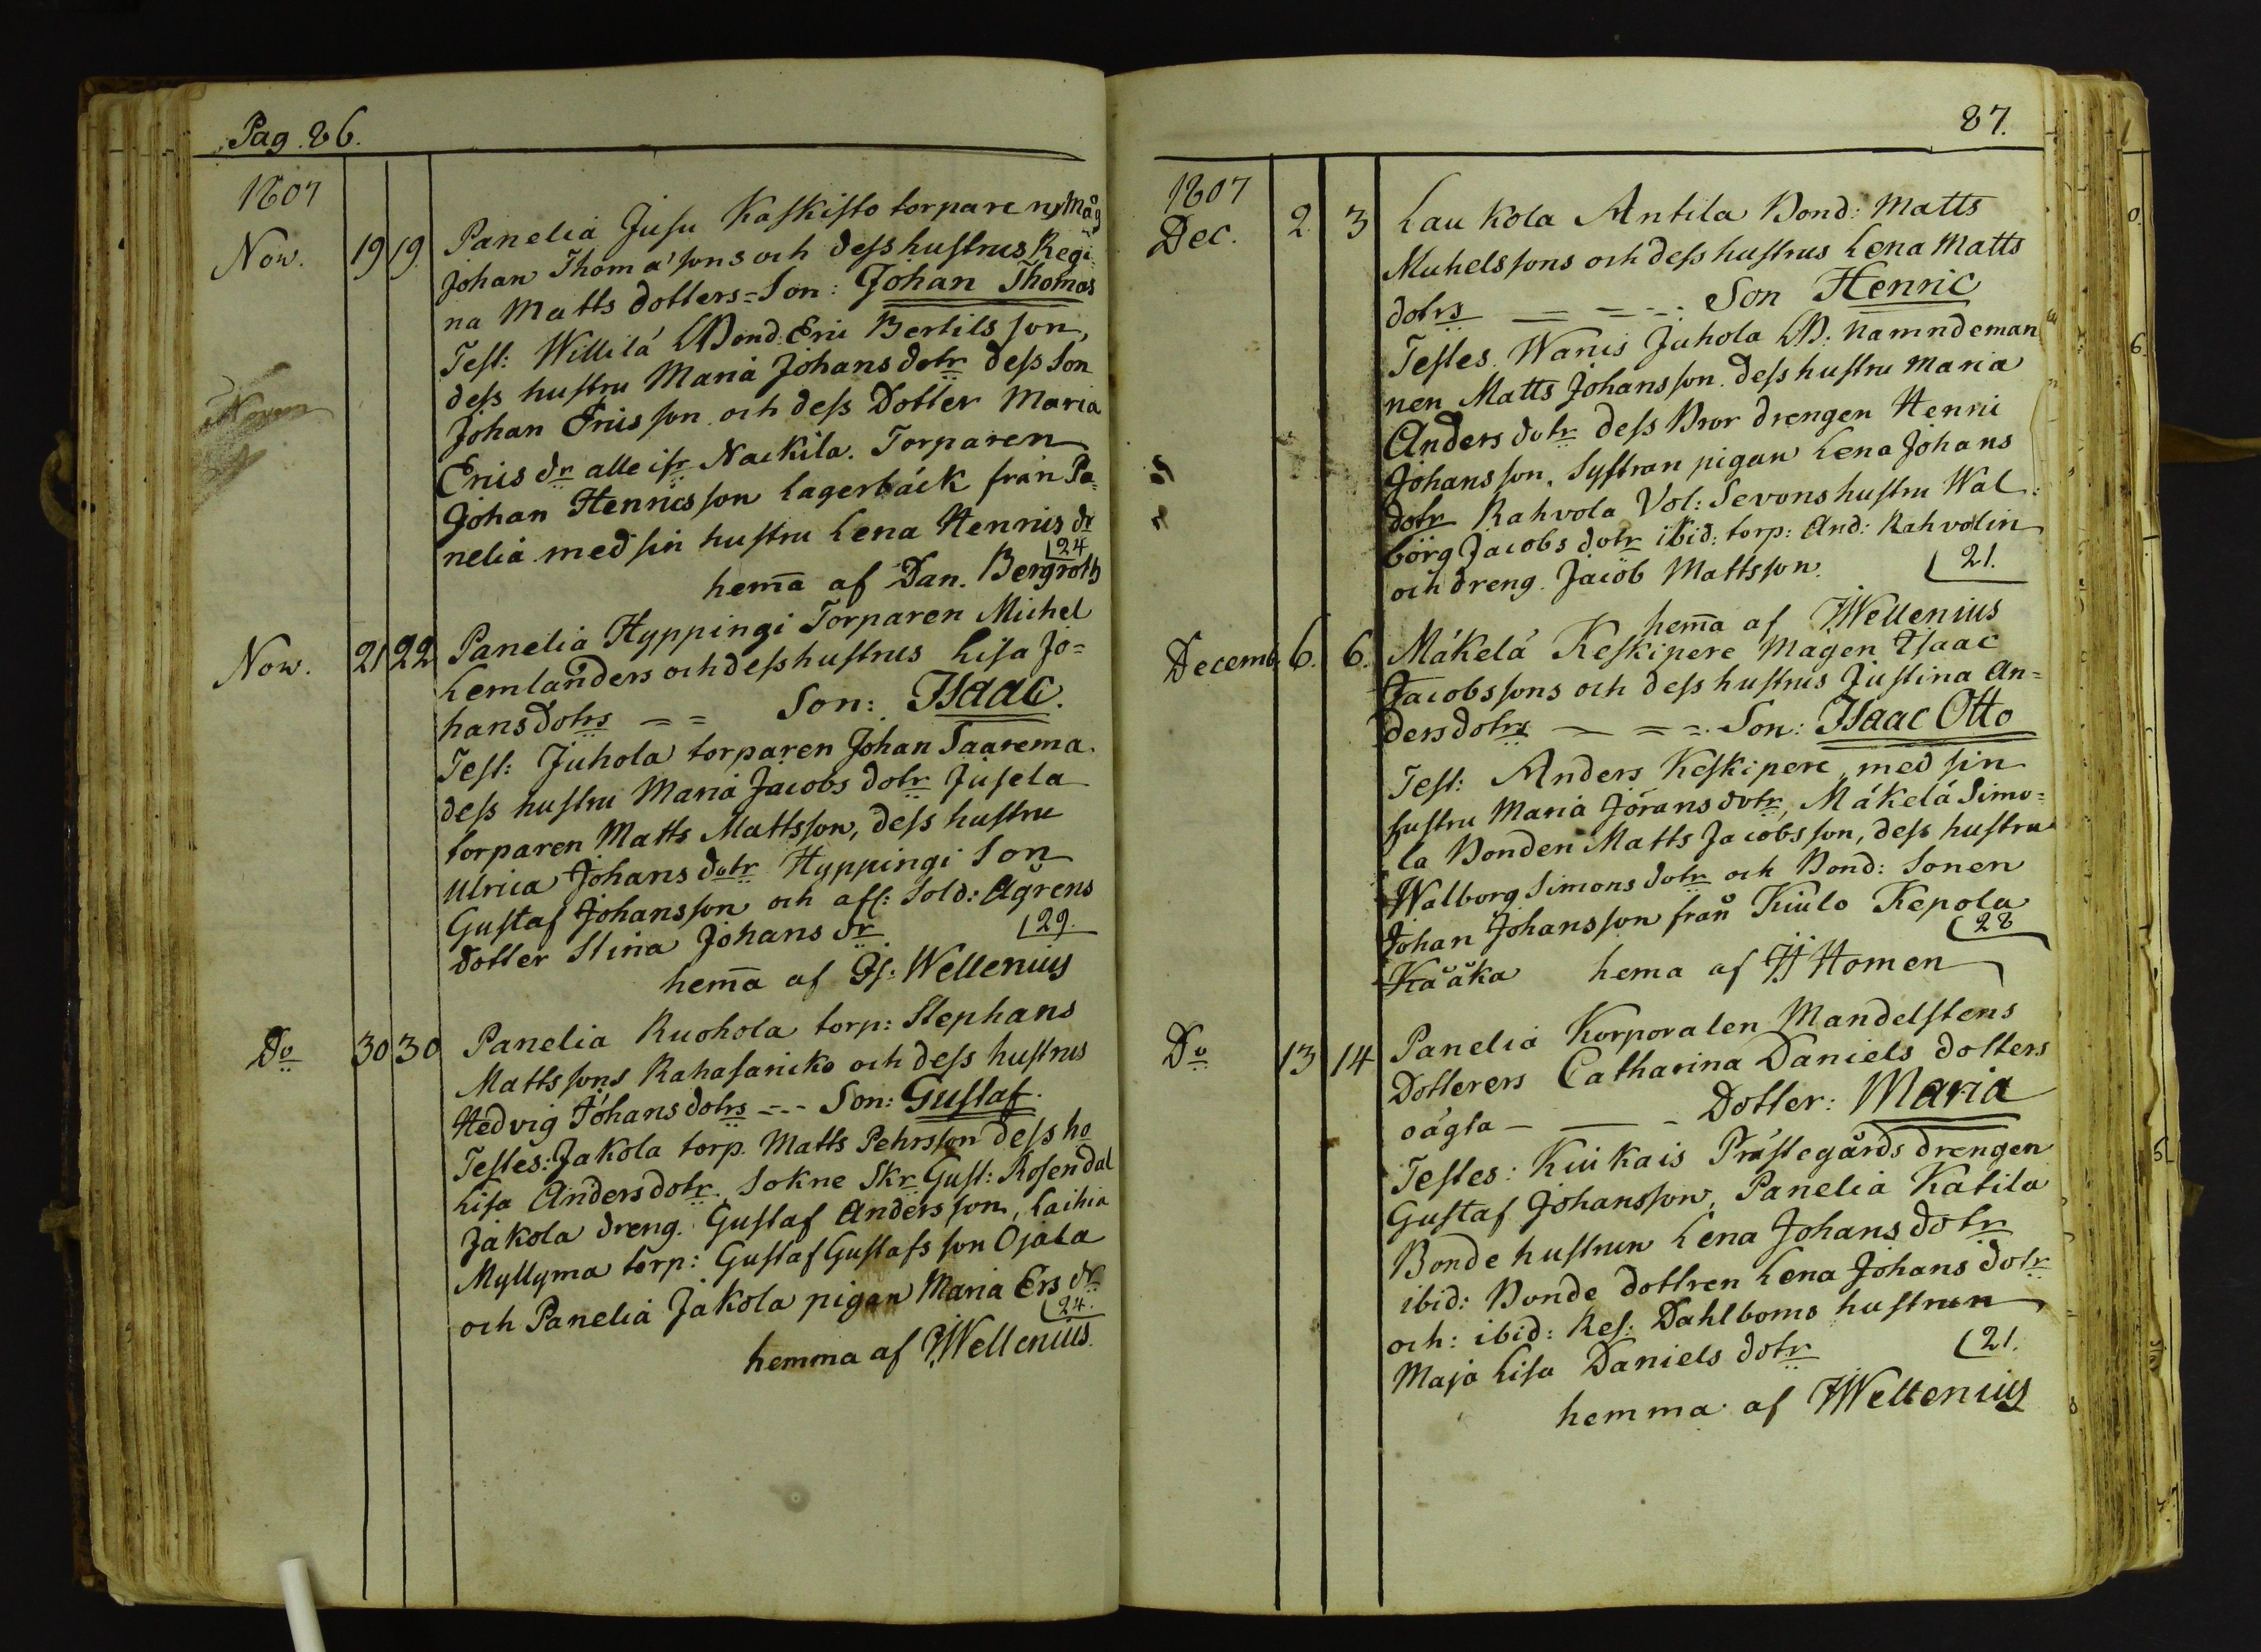 Pag. 86.
1807
Nov. 19 19. Panelia Jusu Kaskisto torpare ny Måg
Johan Thomæ sons och dess hustrus Regi
na Matts dotters = Son: Johan Thomas
Test: Willilä Bond: Eric Bertils son,
dess hustru Maria Johans dotr dess Son
Johan Ericsson och dess Dotter Maria
Erics dr alle ifr Nackila. Torparen
Johan Henricsson Lagerbäck från Pa=
nelia med sin hustru Lena Henrics dr
24
hem̄a af Dan. Bergroth
Nov. 21 22 Panelia Hyppingi Torparen Michel
Lemlanders och dess hustrus Lisa Jo=
hansdotrs = = Son: Isaac.
Test: Juhola torparen Johan Saarema.
dess hustru Maria Jacobs dotr Jusela
torparen Matts Mattsson, dess hustru
Ulrica Johans dotr Hyppingi Son
Gustaf Johansson och afs: Sold: Ågrens
dotter Stina Johans dr 29.
hem̄a af Is. Wellenius
Do 30 30 Panelia Ruohola torp: Stephans
Mattssons Rahasaricko och dess hustrus
Hedvig Johans dotrs = - - Son: Gustaf.
Testes: Jakola torp. Matts Pehrsson dess ho
Lisa Andersdotr. Sokne Skr Gust: Rosendal
Jakola dreng. Gustaf Andersson, Laihia
Myllyma torp: Gustaf Gustafs son Ojala
och Panelia Jakola pigan Maria Ers dr
24.
hemma af IWellenius.
87.
1807
Dec. 2. 3 Laukola Antila Bond: Matts
Michelssons och dess hustrus Lena Matts
dotrs = = - - : Son Henric
Testes. Wanis Juhola B: Namndeman
nen Matts Johansson. dess hustru Maria
Anders dotr dess Bror drengen Henric
Johansson, Systran pigan Lena Johans
dotr Rahvola Vol: Sevons hustru Wal
borg Jacobs dotr ibid: torp: And: Rahvolin
och dreng. Jacob Mattsson. 21.
hem̄a af IWellenius
Decemb. 6. 6. Mäkelä Keskipere Magen Isaac
Jacobssons och dess hustrus Justina An=
dersdotrs - = = Son: Isaac Otto
Test: Anders Keskipere med sin
hustru Maria Jörans dotr, Mäkelä Simo=
la Bonden Matts Jacobsson, dess hustru
Walborg Simons dotr och Bond: Sonen
Johan Johansson från Kiulo Kepola
28
Kååka hema af JHomen
Do 13 14 Panelia Korporalen Mandelstens
Dotterers Catharina Daniels dotters
oägta - — - Dotter: Maria
Testes: Kiukais Prästegårds drengen
Gustaf Johansson, Panelia Katila
Bonde hustrun Lena Johans dotr
ibid: Bonde dottren Lena Johans dotr
och: ibid: Res: Dahlboms hustrun
Maja Lisa Daniels dotr 21.
hemma af IWellenius